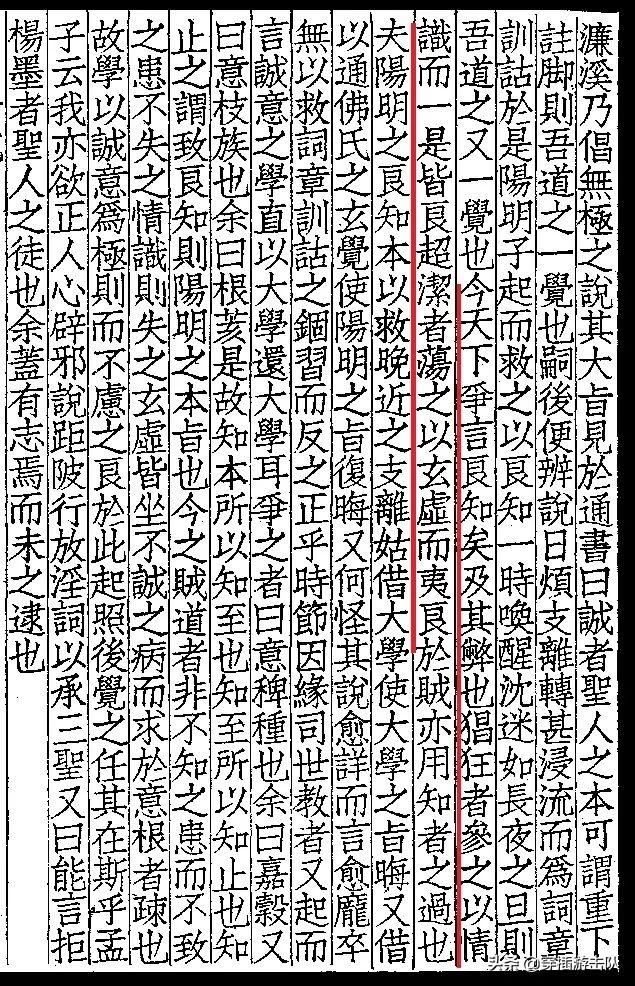 濂溪乃倡無極之說其大旨見於通書曰誠者聖人之本可謂重下
註脚則吾道之一覺也嗣後便辨說日煩支離轉甚浸流而為詞章
訓詁於是陽明子起而救之以良知一時喚醒沈迷如長夜之旦則
吾道之又一覺也今天下爭言良知矣及其弊也猖狂者參之以情
識而一是皆良超潔者蕩之以玄虛而夷良於賊亦用知者之過也
夫陽明之良知本以救晚近之支離姑借大學使大學之旨晦又借
以通佛氏之玄覺使陽明之旨復晦又何怪其說愈詳而言愈龐卒
無以救詞章訓詁之錮習而反之正乎時節因緣司世教者又起而
言誠意之學直以大學還大學耳爭之者曰意稗種也余曰嘉穀又
曰意枝族也余曰根荄是故知本所以知至也知至所以知止也知
止之謂致良知則陽明之本旨也今之賊道者非不知之患而不致
之患不失之情識則失之玄虛皆坐不誠之病而求於意根者疎也
故學以誠意為極則而不慮之良於此起照後覺之任其在斯乎孟
子云我亦欲正人心辟邪說距詖行放淫詞以承三聖又曰能言拒
楊墨者聖人之徒也余蓋有志焉而未之逮也
头条 @穿插游击队